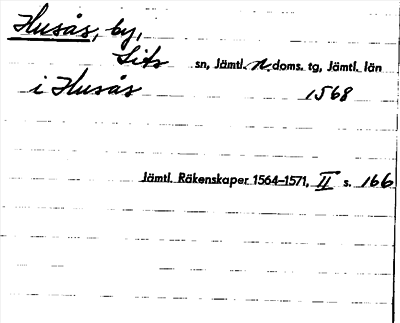 Husås, by,
Lits sn, Jämtl. n. doms. tg, Jämtl. län
i Husås 1568
Jämtl. Räkenskaper 1564–1571, II s. 166